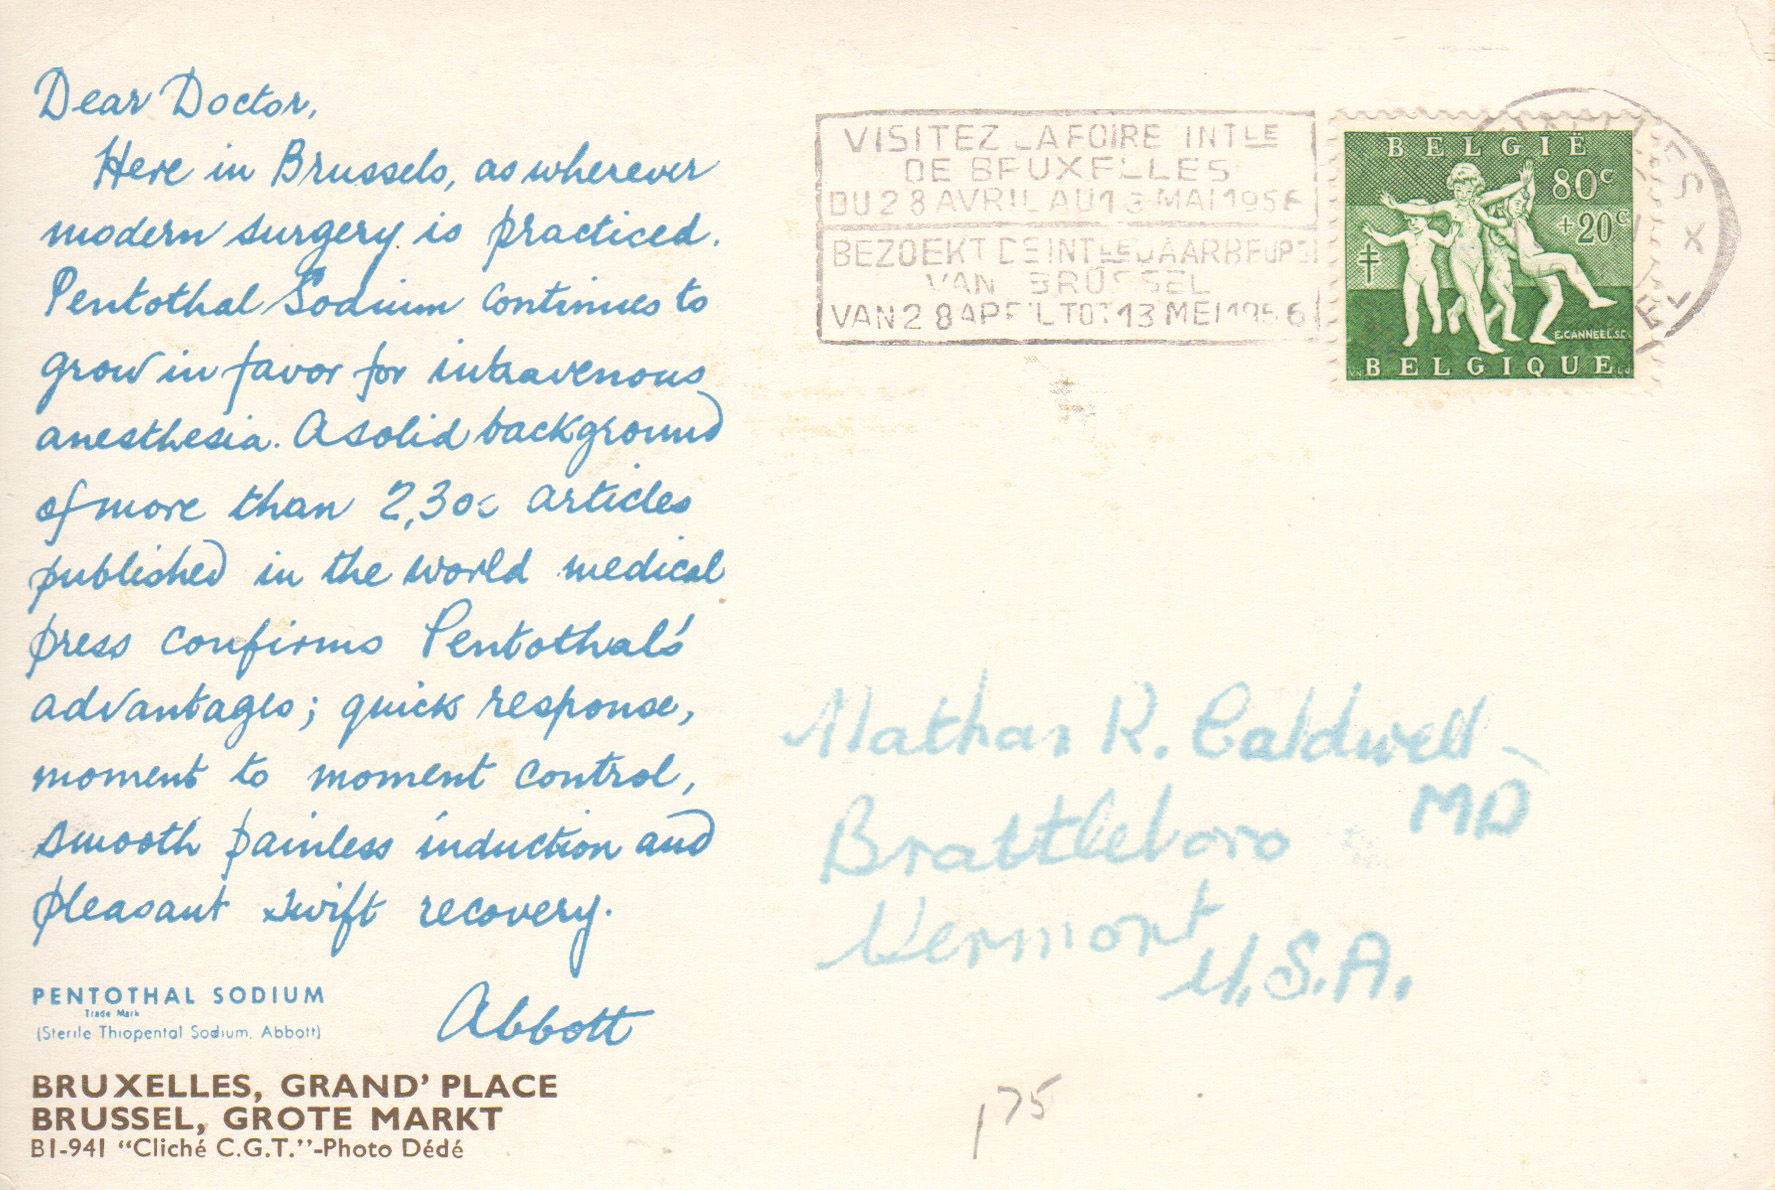 Dear Doctor,
Here in Brussels, as wherever
modern surgery is practiced.
Pentothal Sodium continues to
grow in favor for intravenous
anesthesia. A solid background
of more than 2,300 articles
published in the world medical
press confirms Pentothal's
advantages; quick response,
moment to moment control,
smooth painless induction and
pleasant swift recovery.
Abbott
PENTOTHAL SODIUM
Trade Mark
(Sterile Thiopental Sodium, Abbott)
BRUXELLES, GRAND' PLACE
BRUSSEL, GROTE MARKT
B1-941 “Cliché C.G.T.”-Photo Dédé
VISITEZ LA FOIRE INTLE
DE BRUXELLES
DU 28 AVRIL AU 13 MAI 1956
BEZOEKT DE INTLE JAARBEURS
VAN BRUSSEL
VAN 28 APRIL TOT 13 MEI 1956
BELGIË
80c
+20c
E.CANNEEL.SC.
BELGIQUE
X
Nathan K. Caldwell
MD
Brattleboro
Vermont
U.S.A.
175